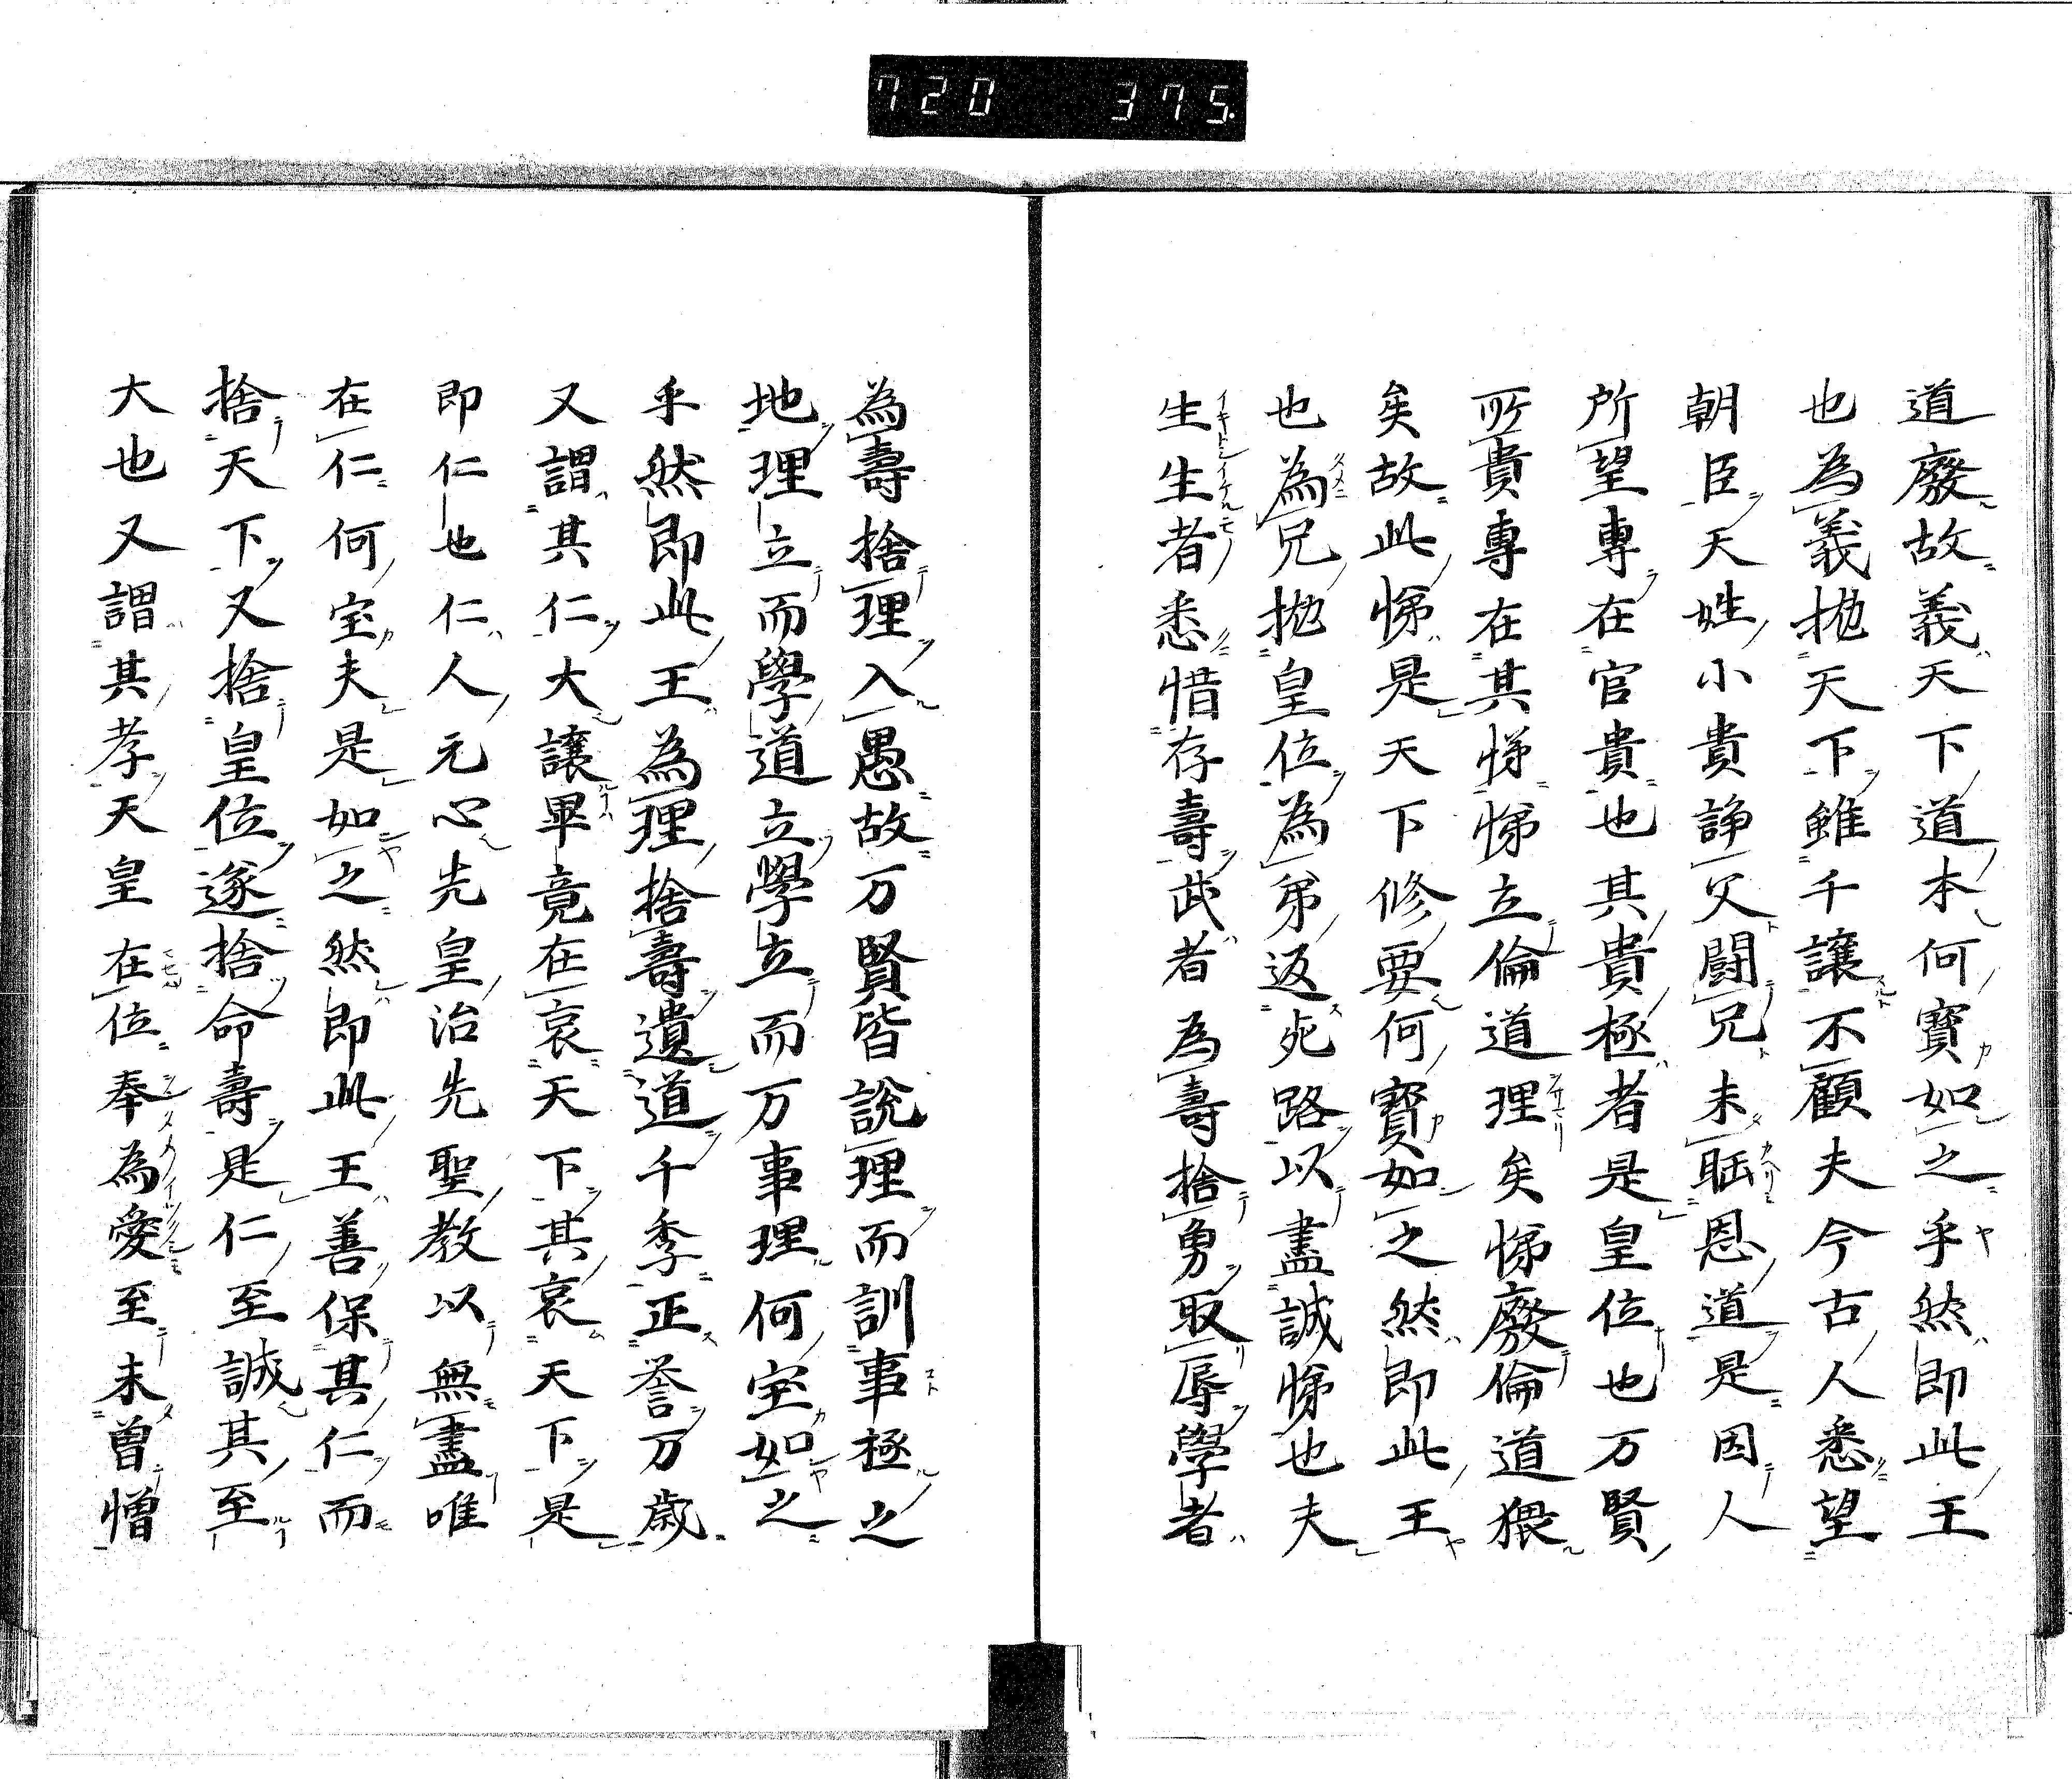 720 375.
道廢故義天下道本何寶如之乎然即此王
也為義拋天下雖千讓不顧夫今古人悉望
朝臣天姓小貴諍父鬪兄未眡恩道是因人
所望專在官貴也其貴極者是皇位也万賢
所貴專在其悌悌立倫道理矣悌廢倫道猥
矣故此悌是天下修要何寶如之然即此王
也為兄拋皇位為弟返死路以盡誠悌也夫
生生者悉惜存壽武者為壽捨勇取辱學者
為壽捨理入愚故万賢皆說理而訓事極之
地理立而學道立學立而万事理何宝如之
乎然即此王為理捨壽遺道千季正誉万歳
又謂其仁大讓畢竟在哀天下其哀天下是
即仁也仁人元心先皇治先聖教以無盡唯
在仁何宝夫是如之然即此王善保其仁而
捨天下又捨皇位遂捨命壽是仁至誠其至
大也又謂其孝天皇在位奉為愛至未曽憎